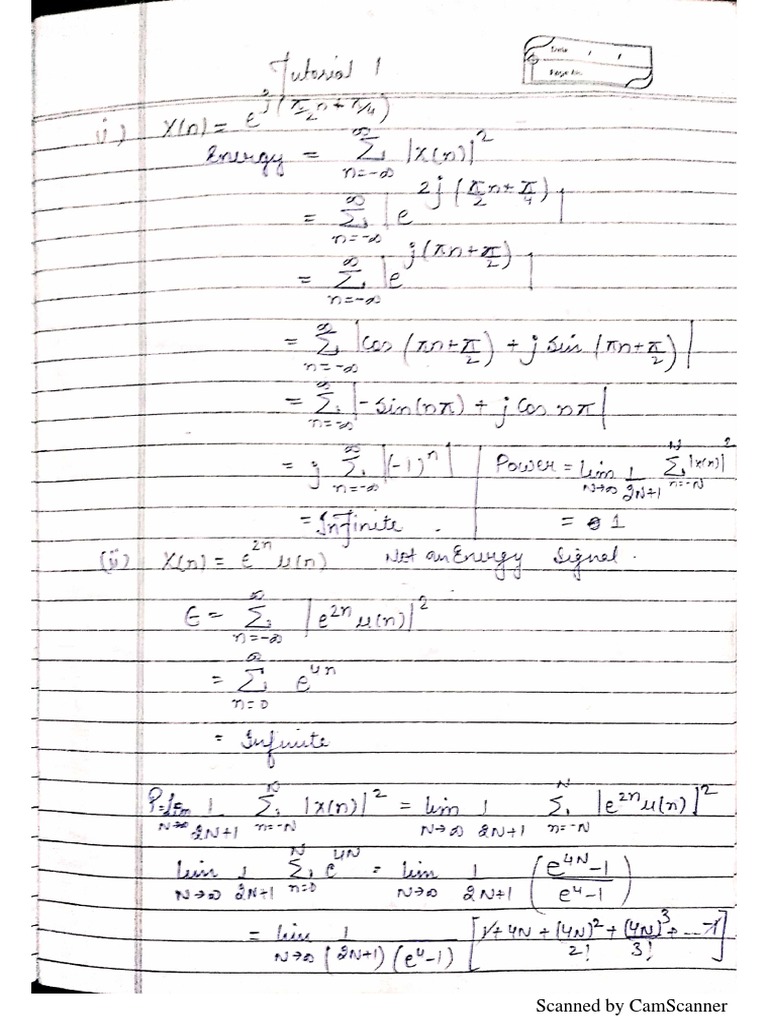 Tutorial 1
Date / /
Page No.
i) x(n) = e^{j(π/2 n + π/4)}
Energy = ∑_{n=-∞}^{∞} |x(n)|^2
= ∑_{n=-∞}^{∞} |e^{2j(π/2 n + π/4)}|
= ∑_{n=-∞}^{∞} |e^{j(πn + π/2)}|
= ∑_{n=-∞}^{∞} |cos (πn + π/2) + j sin (πn + π/2)|
= ∑_{n=-∞}^{∞} |-sin(nπ) + j cos nπ|
= j ∑_{n=-∞}^{∞} |(-1)^n| | Power = lim_{N→∞} 1/(2N+1) ∑_{n=-N}^{N} |x(n)|^2
= Infinite . = 1
(ii) x(n) = e^{2n} u(n) Not an Energy Signal.
E = ∑_{n=-∞}^{∞} |e^{2n} u(n)|^2
= ∑_{n=0}^{∞} e^{4n}
= Infinite
P = lim_{N→∞} 1/(2N+1) ∑_{n=-N}^{N} |x(n)|^2 = lim_{N→∞} 1/(2N+1) ∑_{n=-N}^{N} |e^{2n} u(n)|^2
lim_{N→∞} 1/(2N+1) ∑_{n=0}^{N} e^{4N} = lim_{N→∞} 1/(2N+1) ((e^{4N}-1)/(e^4-1))
= lim_{N→∞} 1/((2N+1)(e^4-1)) [1 + 4N + (4N)^2/2! + (4N)^3/3! + ... -1]
Scanned by CamScanner